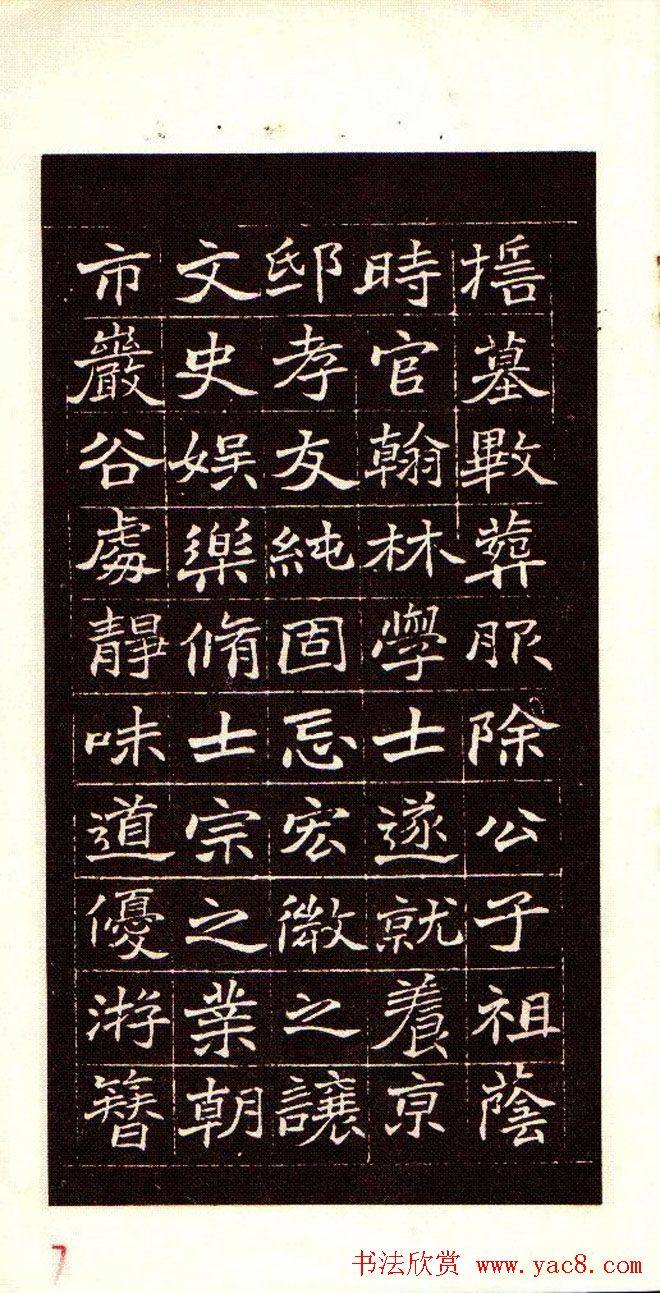 墓㪤葬服除公子祖蔭
時官翰林學士遂就養京
邸孝友純固忘宏微之讓
文史娛樂脩士宗之業朝
市巖谷處靜味道優游簪
7
书法欣赏 www.yac8.com